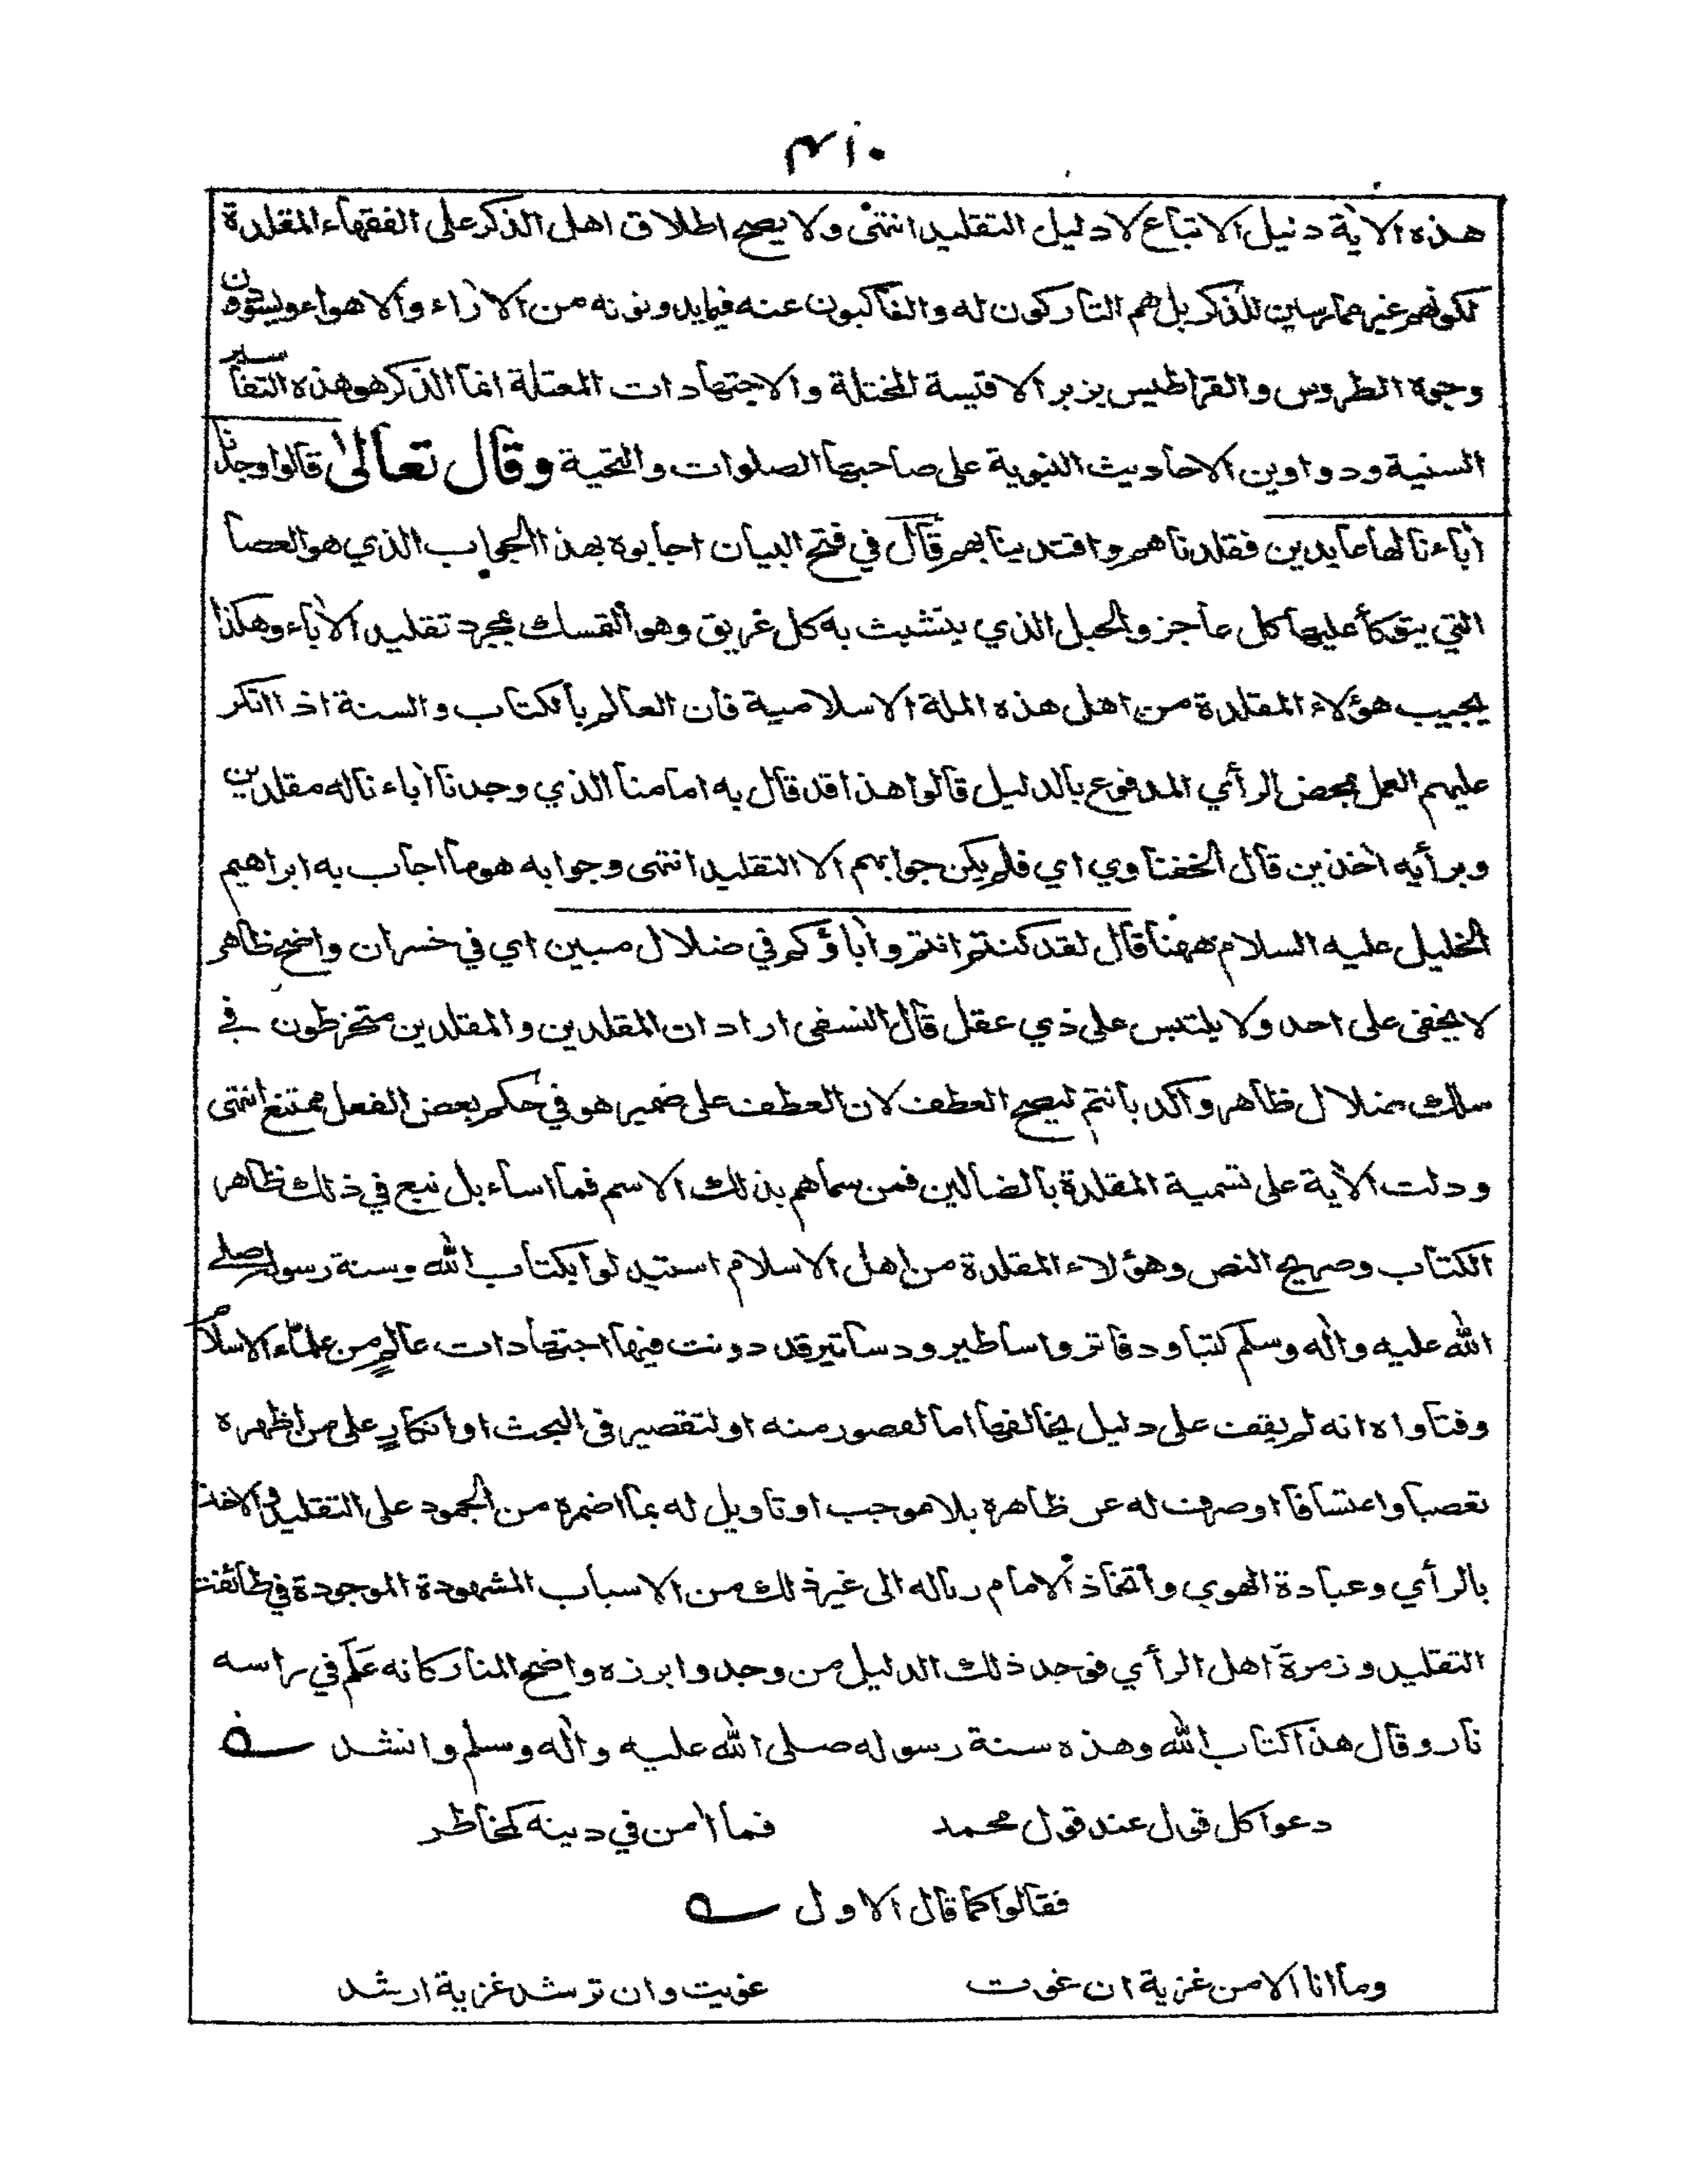 ٤١٠
هذه الاٰية دليل الاتباع لا دليل التقليد انتهٰى ولا يصح اطلاق اهل الذكر على الفقهاء المقلدة
لكونهم غير ممارسين للذكر بل هم التاركون له والناكبون عنه فيما يدونونه من الاٰراء والاهواء ويسودون
وجوه الطروس والقراطيس بزبر الاقيسة المختلة والاجتهادات المعتلة انما الذكر هو هذه التفاسير
السنية ودواوين الاحاديث النبوية على صاحبها الصلوات والتحية وقال تعالىٰ قالوا وجدنا
اٰباءنا لها عابدين فقلدناهم واقتدينا بهم قال في فتح البيان اجابوه بهذا الجواب الذي هو العصا
التي يتوكأ عليها كل عاجز والحبل الذي يتشبث به كل غريق وهو التمسك بمجرد تقليد الاٰباء وهكذا
يجيب هؤلاء المقلدة من اهل هذه الملة الاسلامية فان العالم بالكتاب والسنة اذا انكر
عليهم العمل بمحض الرأي المدفوع بالدليل قالوا هذا قد قال به امامنا الذي وجدنا اٰباءنا له مقلدين
وبرأيه اٰخذين قال الخفناوي اي فلم يكن جوابهم الا التقليد انتهى وجوابه هو ما اجاب به ابراهيم
الخليل عليه السلام ههنا قال لقد كنتم انتم واٰباؤكم في ضلال مبين اي في خسران واضح ظاهر
لا يخفى على احد ولا يلتبس على ذي عقل قال النسفي اراد ان المقلدين والمقلدين منخرطون في
سلك ضلال ظاهر واكد بأنتم ليصح العطف لان العطف على ضمير هو في حكم بعض الفعل ممتنع انتهى
ودلت الاٰية على تسمية المقلدة بالضالين فمن سماهم بذلك الاسم فما اساء بل تبع في ذلك ظاهر
الكتاب وصريح النص وهؤلاء المقلدة من اهل الاسلام استبدلوا بكتاب الله وسنة رسوله صلى
الله عليه واٰله وسلم كتبا ودفاتر واساطير ودساتير قد دونت فيها اجتهادات عالمٍ من علماء الاسلام
وفتاواه انه لم يقف على دليل يخالفها اما لقصور منه او لتقصير في البحث او انكارٍ على من اظهره
تعصبا واعتسافا او صرف له عن ظاهره بلا موجب او تاويل له بما اضمره من الجمود على التقليد والاخذ
بالرأي وعبادة الهوي واتخاذ الامام رباله الى غير ذلك من الاسباب المشهودة الموجودة في طائفة
التقليد وزمرة اهل الرأي فوجد ذلك الدليل من وجد وابرزه واضح المنار كانه علم في راسه
نار وقال هذا كتاب الله وهذه سنة رسوله صلى الله عليه واٰله وسلم وانشد
دعوا كل قول عند قول محمد فما اٰمن في دينه كمخاطر
فقالوا كما قال الاول
وما انا الا من غزية ان غوت غويت وان ترشد غزية ارشد